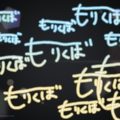 もりくぼ
もりくぼ
もりくぼ
もりくぼ
もりくぼ
もりくぼ
もりくぼ
もりくぼ
もりくぼ